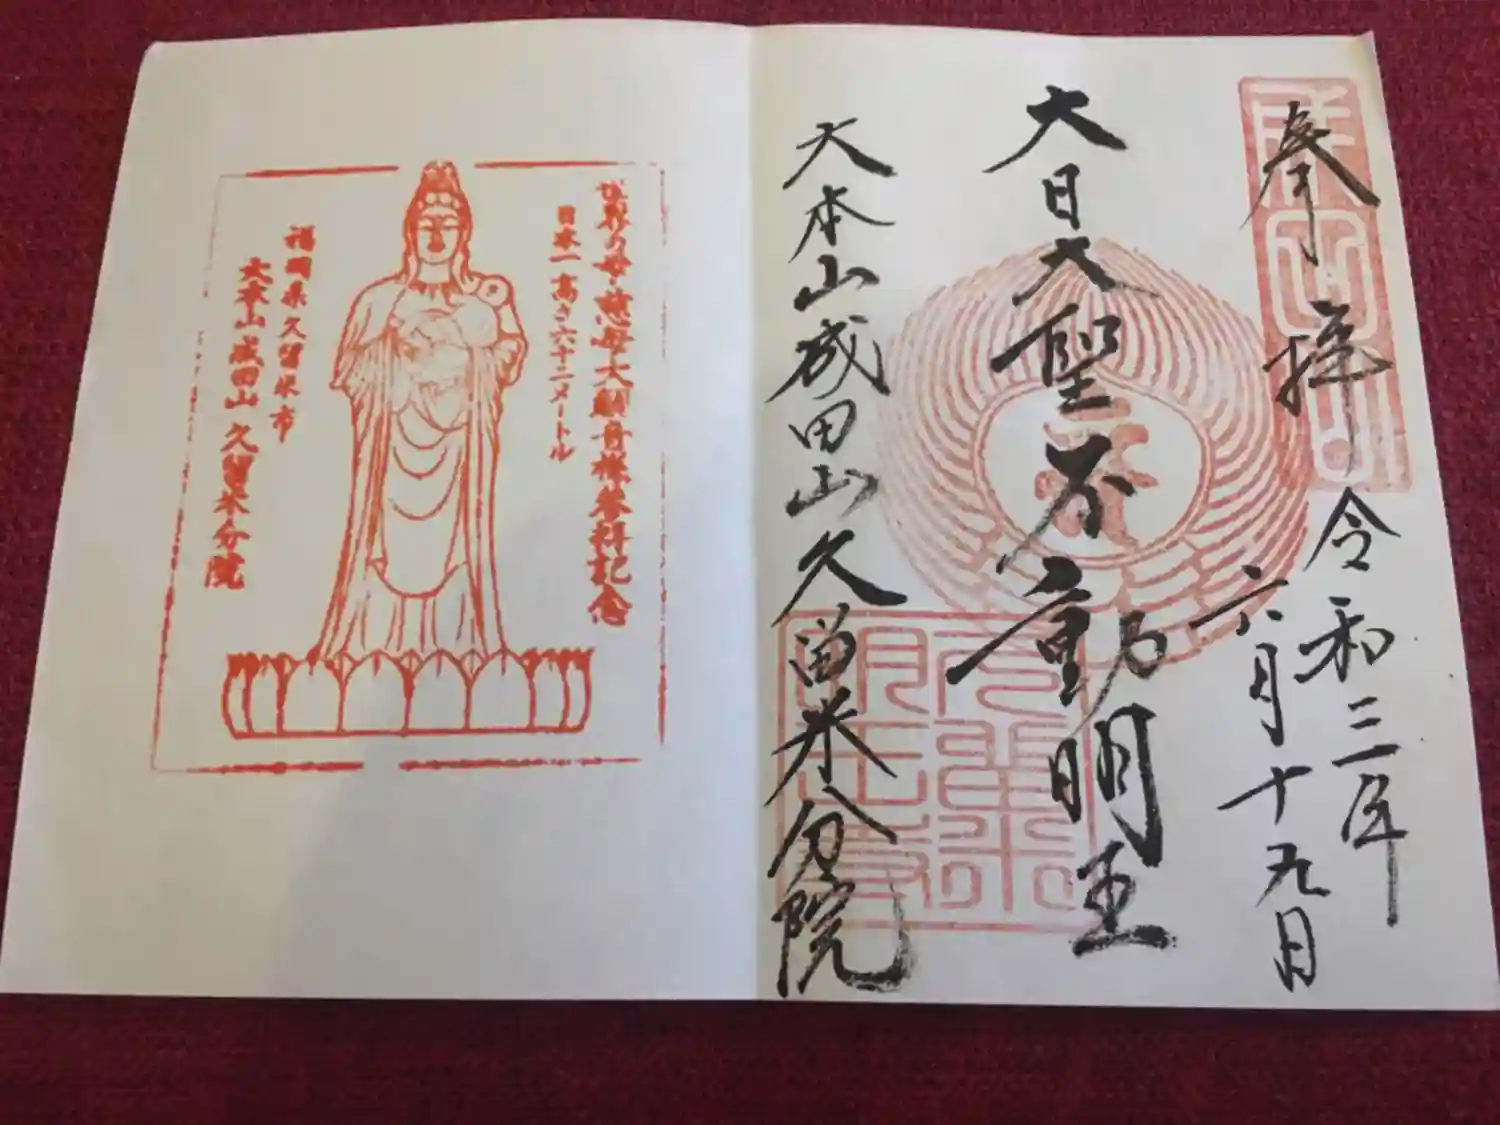 奉拝
令和三年
六月十九日
大日大聖不動明王
大本山成田山久留米分院
世界の母・慈母大観音様参拝記念
日本一高さ六十二メートル
福岡県久留米市
大本山成田山久留米分院